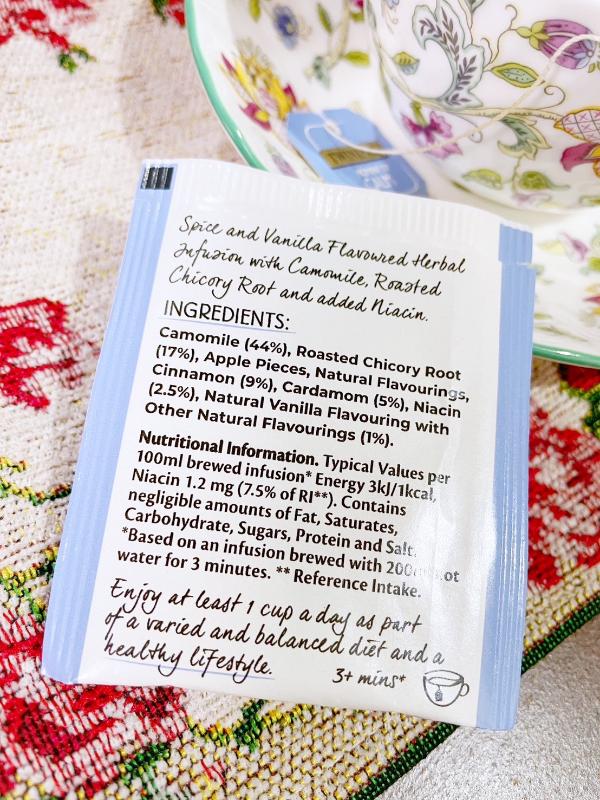 TWININGS
Spice and Vanilla Flavoured Herbal
Infusion with Camomile, Roasted
Chicory Root and added Niacin.
INGREDIENTS:
Camomile (44%), Roasted Chicory Root
(17%), Apple Pieces, Natural Flavourings,
Cinnamon (9%), Cardamom (5%), Niacin
(2.5%), Natural Vanilla Flavouring with
Other Natural Flavourings (1%).
Nutritional Information. Typical Values per
100ml brewed infusion* Energy 3kJ/1kcal,
Niacin 1.2 mg (7.5% of RI**). Contains
negligible amounts of Fat, Saturates,
Carbohydrate, Sugars, Protein and Salt.
*Based on an infusion brewed with
water for 3 minutes. ** Reference Intake.
Enjoy at least 1 cup a day as part
of a varied and balanced diet and a
healthy lifestyle.
3+ mins*